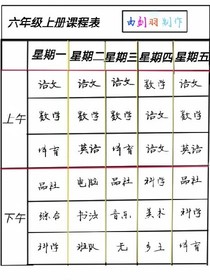 六年级上册课程表 由刘羽制作
星期一 星期二 星期三 星期四 星期五
上午
语文 语文 语文 数学 语文
数学 数学 数学 语文 数学
体育 英语 体育 英语 英语
下午
品社 电脑 品社 科学 品社
综合 书法 音乐 美术 音乐
科学 班队 无 乡土 体育